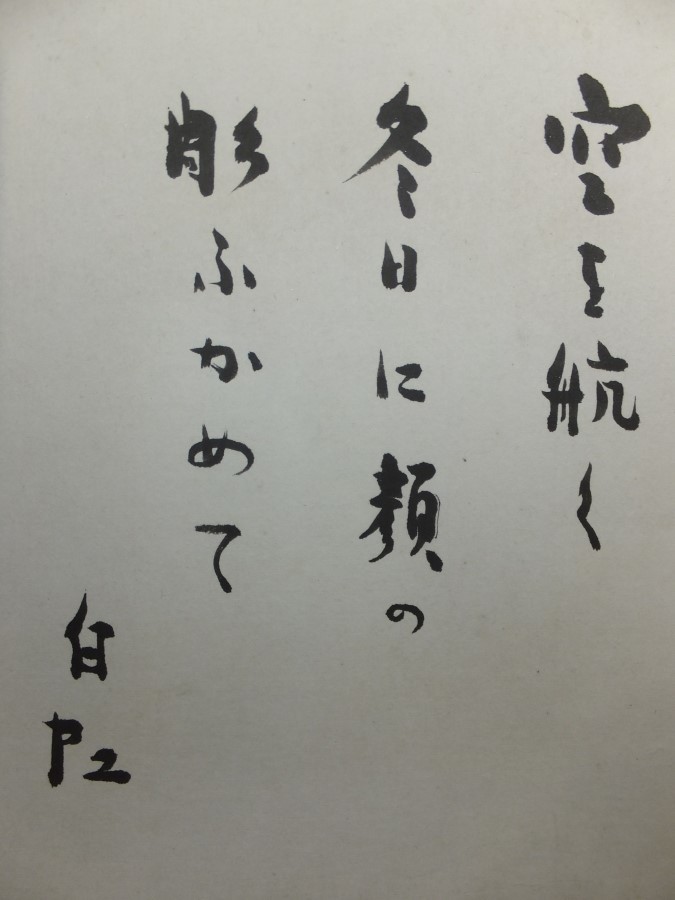 空を航く
冬日に顔の
彫ふかめて
白虹